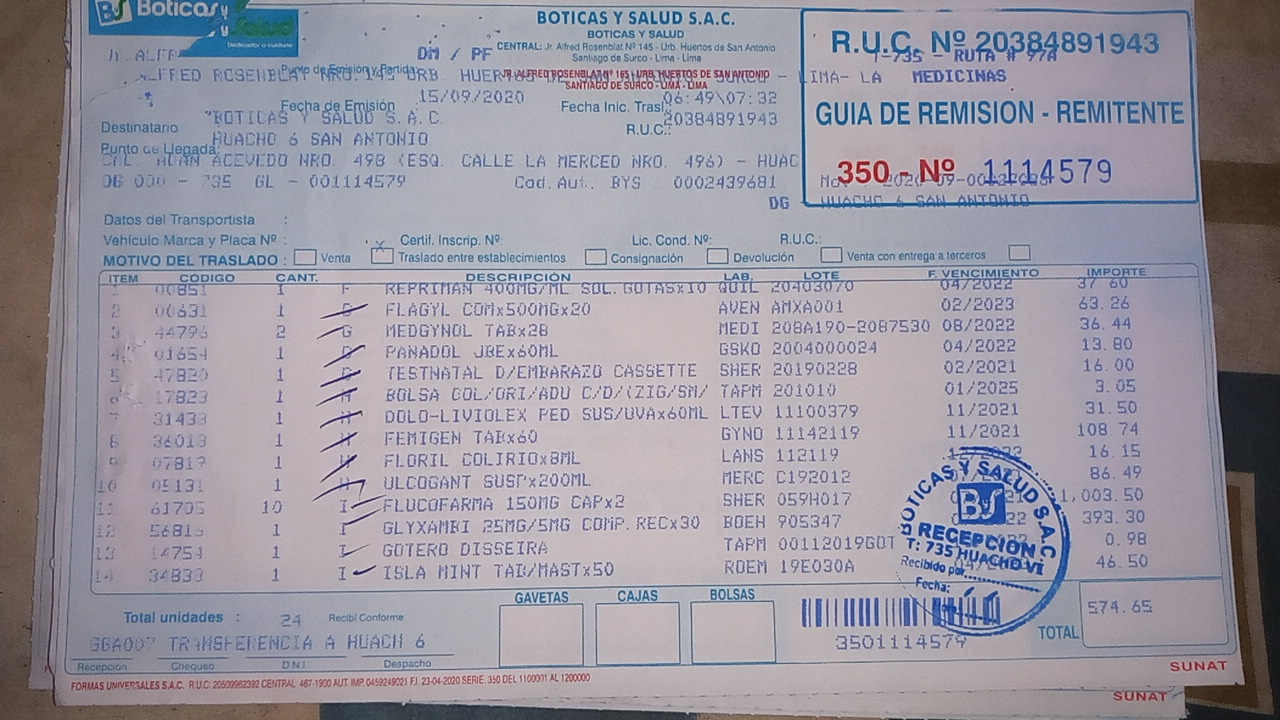 BS Boticas y Salud
Dedicados a cuidarte
BOTICAS Y SALUD S.A.C.
BOTICAS Y SALUD
CENTRAL: Jr. Alfred Rosenblat Nº 145 - Urb. Huertos de San Antonio
Santiago de Surco - Lima - Lima
JR. ALFRED ROSENBLAT Nº 165 - URB. HUERTOS DE SAN ANTONIO
SANTIAGO DE SURCO - LIMA - LIMA
R.U.C. Nº 20384891943
T-735 - RUTA # 97A
MEDICINAS
GUIA DE REMISION - REMITENTE
350 - Nº 1114579
DM / PF
Punto de Emisión y Partida
ALFRED ROSENBLAT NRO. URB HUERTOS LIMA- LA
Fecha de Emisión 15/09/2020 Fecha Inic. Trasl.: 06:49\07:32
Destinatario BOTICAS Y SALUD S.A.C. R.U.C.: 20384891943
HUACHO 6 SAN ANTONIO
Punto de Llegada:
CAL. ALAN ACEVEDO NRO. 498 (ESQ. CALLE LA MERCED NRO. 496) - HUAC
DG 000 - 735 GL - 001114579 Cod.Aut. BYS : 0002439681
DG - HUACHO 6 SAN ANTONIO
Datos del Transportista :
Vehículo Marca y Placa Nº : Certif. Inscrip. Nº: Lic. Cond. Nº: R.U.C.:
MOTIVO DEL TRASLADO : Venta x Traslado entre establecimientos Consignación Devolución Venta con entrega a terceros
ITEM CÓDIGO CANT. DESCRIPCIÓN LAB. LOTE F. VENCIMIENTO IMPORTE
1 00851 1 F REPRIMAN 400MG/ML SOL.GOTASx10 QUIL 20403070 04/2022 37.60
2 00631 1 G FLAGYL COMx500MGx20 AVEN AMXA001 02/2023 63.26
3 44796 2 G MEDGYNOL TABx28 MEDI 208A190-2087530 08/2022 36.44
4 01654 1 G PANADOL JBEx60ML GSKO 2004000024 04/2022 13.80
5 47820 1 G TESTNATAL D/EMBARAZO CASSETTE SHER 20190228 02/2021 16.00
6 17823 1 BOLSA COL/ORI/ADU C/D/(ZIG/SM/ TAPM 201010 01/2025 3.05
7 31433 1 H DOLO-LIVIOLEX PED SUS/UVAx60ML LTEV 11100379 11/2021 31.50
8 36013 1 H FEMIGEN TABx60 GYNO 11142119 11/2021 108.74
9 07819 1 H FLORIL COLIRIOx8ML LANS 112119 16.15
10 05131 1 H ULCOGANT SUSPx200ML MERC C192012 86.49
11 61705 10 I FLUCOFARMA 150MG CAPx2 SHER 059H017 1,003.50
12 56816 1 I GLYXAMBI 25MG/5MG COMP.RECx30 BOEH 905347 393.30
13 14754 1 I GOTERO DISSEIRA TAPM 00112019GOT 0.98
14 34833 1 I ISLA MINT TAB/MASTx50 ROEM 19E030A 46.50
BOTICAS Y SALUD S.A.C
BS
RECEPCIÓN
T: 735 HUACHO VI
Recibido por
Fecha:
GAVETAS CAJAS BOLSAS
Total unidades : 24 Recibí Conforme
GBA007 TRANSFERENCIA A HUACH 6
Recepción Chequeo D.N.I. Despacho
3501114579
TOTAL 574.65
SUNAT
FORMAS UNIVERSALES S.A.C. R.U.C. 20509962392 CENTRAL: 467-1900 AUT. IMP. 0459249021 F.I. 23-04-2020 SERIE: 350 DEL 1100001 AL 1200000
SUNAT